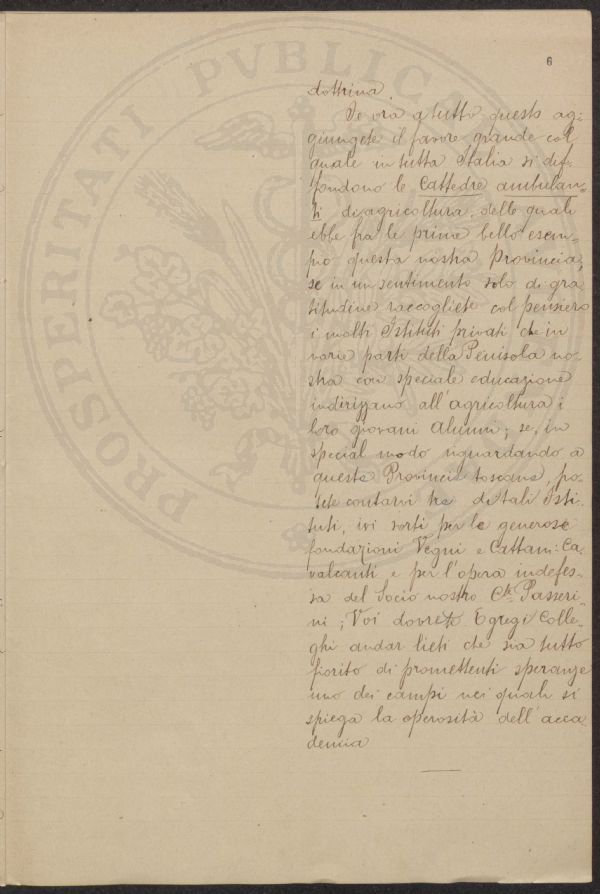 6
dottrina.
Se ora a tutto questo ag-
giungete il favore grande col
quale in tutta Italia si dif-
fondono le Cattedre ambulan-
ti di agricoltura, delle quali
ebbe fra le prime bello esem-
pio questa nostra Provincia,
se in un sentimento solo di gra
titudine raccogliete col pensiero
i molti Istituti privati che in
varie parti della Penisola no-
stra con speciale educazione
indirizzano all'agricoltura i
loro giovani alunni; se, in
special modo riguardando a
questa Provincia toscana, po-
tete contarvi tre di tali Isti-
tuti, ivi sorti per le generose
fondazioni Vegni e Cattani-Ca-
valcanti, e per l'opera indefes-
sa del Socio nostro Cte. Passeri-
ni; Voi dovrete Egregi Colle-
ghi andar lieti che sia tutto
fiorito di promettenti speranze
uno dei campi nei quali si
spiega la operosità dell'acca-
demia
PROSPERITATI PVBLICA